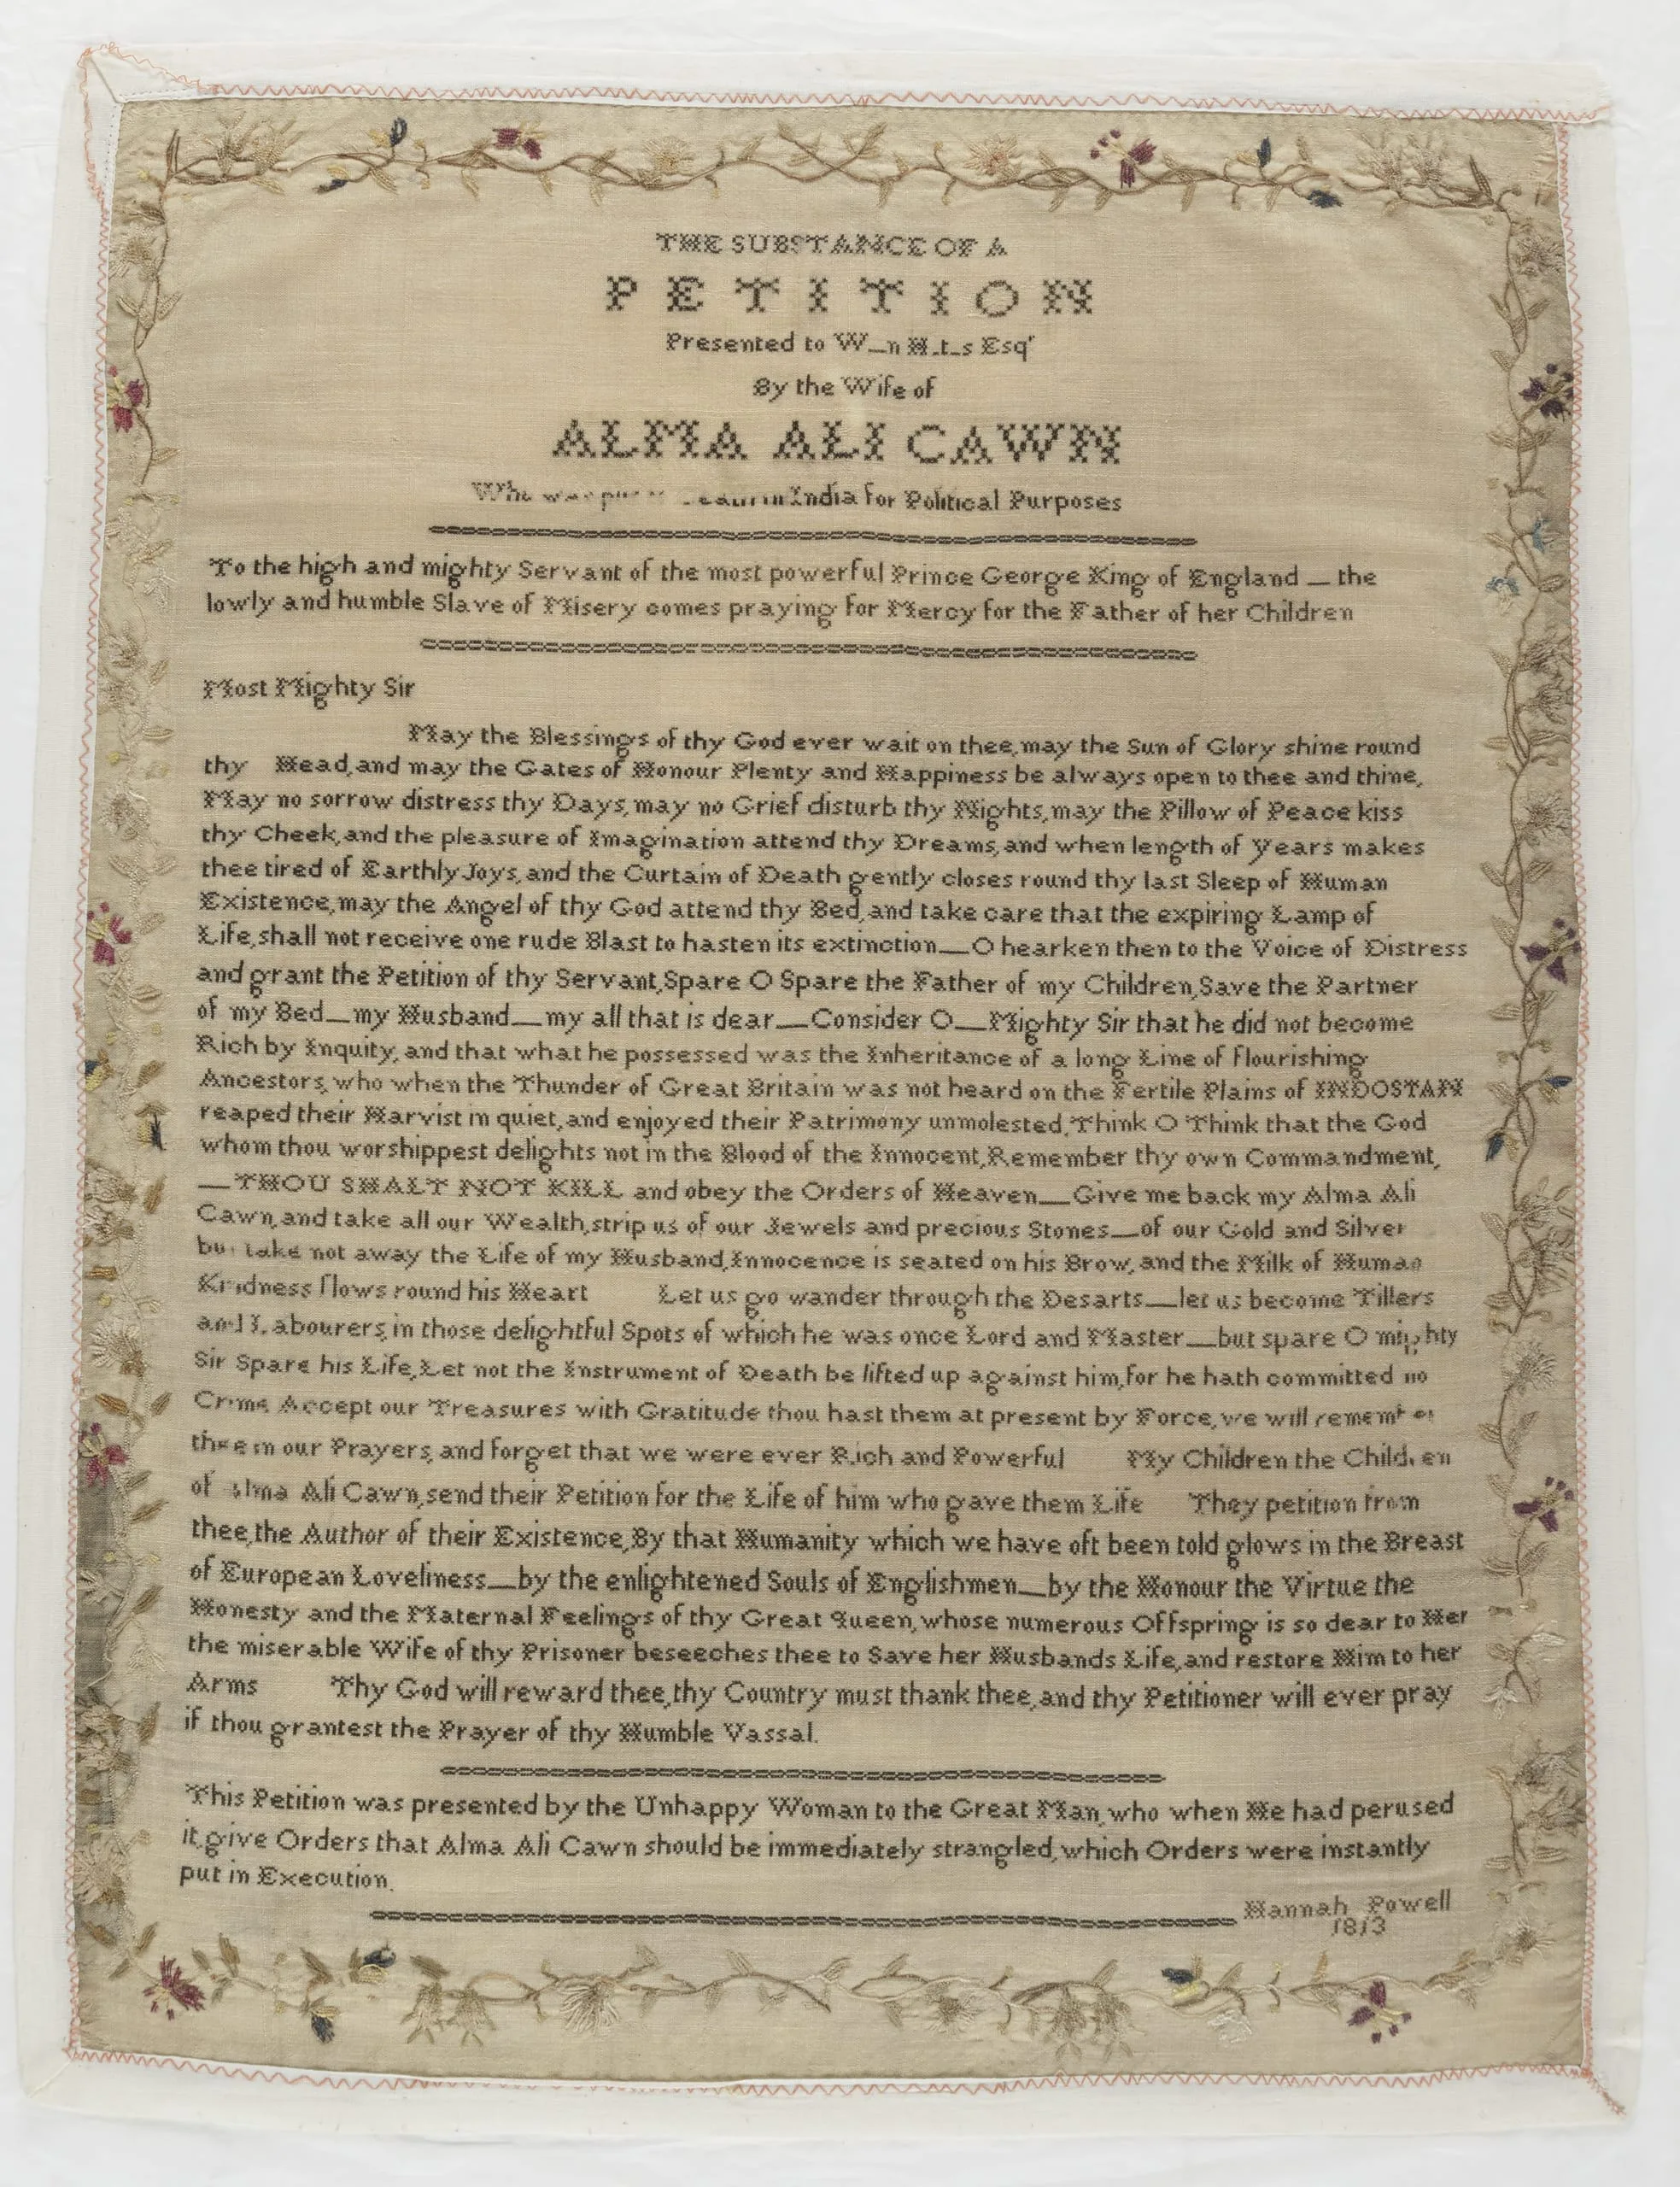 THE SUBSTANCE OF A
PETITION
Presented to W_n H_t_s Esqr
By the Wife of
ALMA ALI CAWN
Who was in India for Political Purposes
To the high and mighty Servant of the most powerful Prince George King of England _ the
lowly and humble Slave of Misery comes praying for Mercy for the Father of her Children
Most Mighty Sir
May the Blessings of thy God ever wait on thee, may the Sun of Glory shine round
thy Head, and may the Gates of Honour Plenty and Happiness be always open to thee and thine,
May no sorrow distress thy Days, may no Grief disturb thy Nights, may the Pillow of Peace kiss
thy Cheek, and the pleasure of Imagination attend thy Dreams, and when length of Years makes
thee tired of Earthly Joys, and the Curtain of Death gently closes round thy last Sleep of Human
Existence, may the Angel of thy God attend thy Bed, and take care that the expiring Lamp of
Life, shall not receive one rude Blast to hasten its extinction__O hearken then to the Voice of Distress
and grant the Petition of thy Servant, Spare O Spare the Father of my Children, Save the Partner
of my Bed__my Husband__my all that is dear__Consider O__Mighty Sir that he did not become
Rich by Inquity, and that what he possessed was the Inheritance of a long Line of flourishing
Ancestors, who when the Thunder of Great Britain was not heard on the Fertile Plains of INDOSTAN
reaped their Harvist in quiet, and enjoyed their Patrimony unmolested, Think O Think that the God
whom thou worshippest delights not in the Blood of the Innocent, Remember thy own Commandment,
__THOU SHALT NOT KILL and obey the Orders of Heaven__Give me back my Alma Ali
Cawn, and take all our Wealth, strip us of our Jewels and precious Stones__of our Gold and Silver
but take not away the Life of my Husband, Innocence is seated on his Brow, and the Milk of Human
Kindness flows round his Heart Let us go wander through the Desarts__let us become Tillers
and Labourers, in those delightful Spots of which he was once Lord and Master__but spare O mighty
Sir Spare his Life, Let not the Instrument of Death be lifted up against him, for he hath committed no
Crime Accept our Treasures with Gratitude thou hast them at present by Force, we will remember
thee in our Prayers, and forget that we were ever Rich and Powerful My Children the Children
of Alma Ali Cawn, send their Petition for the Life of him who gave them Life They petition from
thee, the Author of their Existence, By that Humanity which we have oft been told glows in the Breast
of European Loveliness__by the enlightened Souls of Englishmen__by the Honour the Virtue the
Honesty and the Maternal Feelings of thy Great Queen, whose numerous Offspring is so dear to Her
the miserable Wife of thy Prisoner beseeches thee to Save her Husbands Life, and restore Him to her
Arms Thy God will reward thee, thy Country must thank thee, and thy Petitioner will ever pray
if thou grantest the Prayer of thy Humble Vassal.
This Petition was presented by the Unhappy Woman to the Great Man, who when He had perused
it, give Orders that Alma Ali Cawn should be immediately strangled, which Orders were instantly
put in Execution.
Hannah Powell
1813